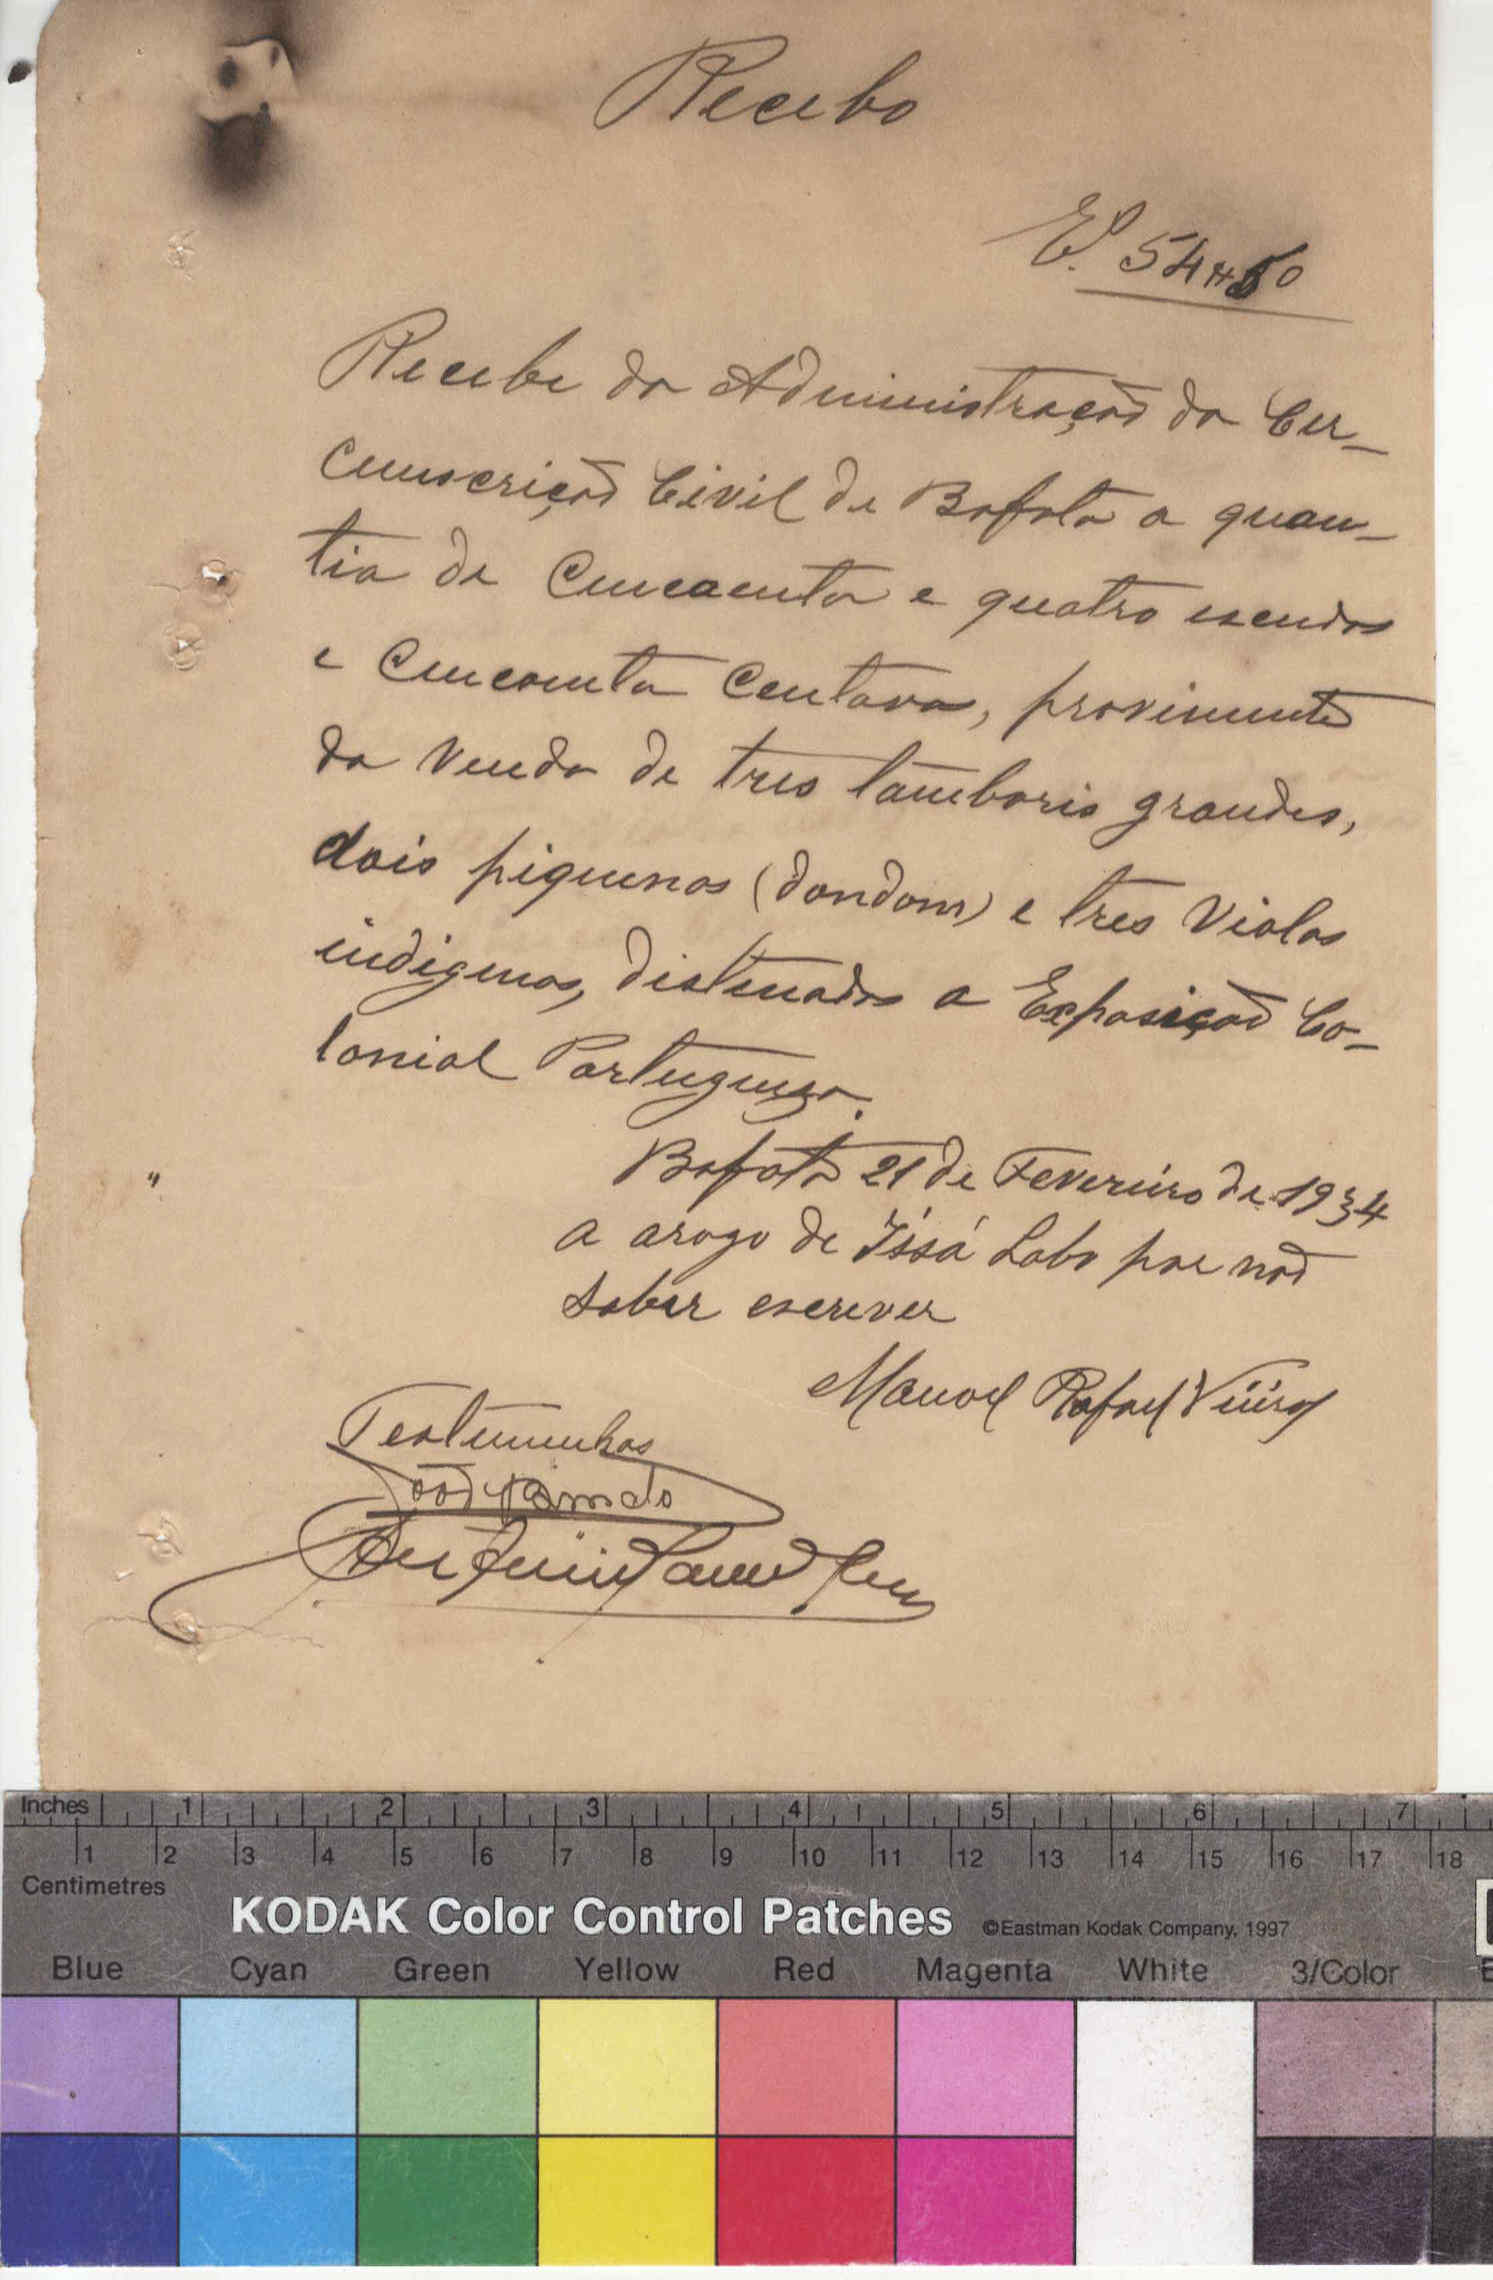 Recebo
E.º 54$50
Recebe da Administração da Cir-
cunscrição Civil de Bafata a quan-
tia de Cincoenta e quatro escudos
e Cincoenta Centavos, proviniente
da Venda de tres tamboris grandes,
dois piquenos (dondom) e tres Violas
indigenas, distenados a Exposição Co-
lonial Portugueza.
Bafata 21 de Fevereiro de 1934
a arogo de Issá Lobo por não
saber escrever
Manoel Rafael
Testimunhas
João
"
Inches 1 2 3 4 5 6 7
1 2 3 4 5 6 7 8 9 10 11 12 13 14 15 16 17 18
Centimetres
KODAK Color Control Patches ©Eastman Kodak Company, 1997
Blue Cyan Green Yellow Red Magenta White 3/Color